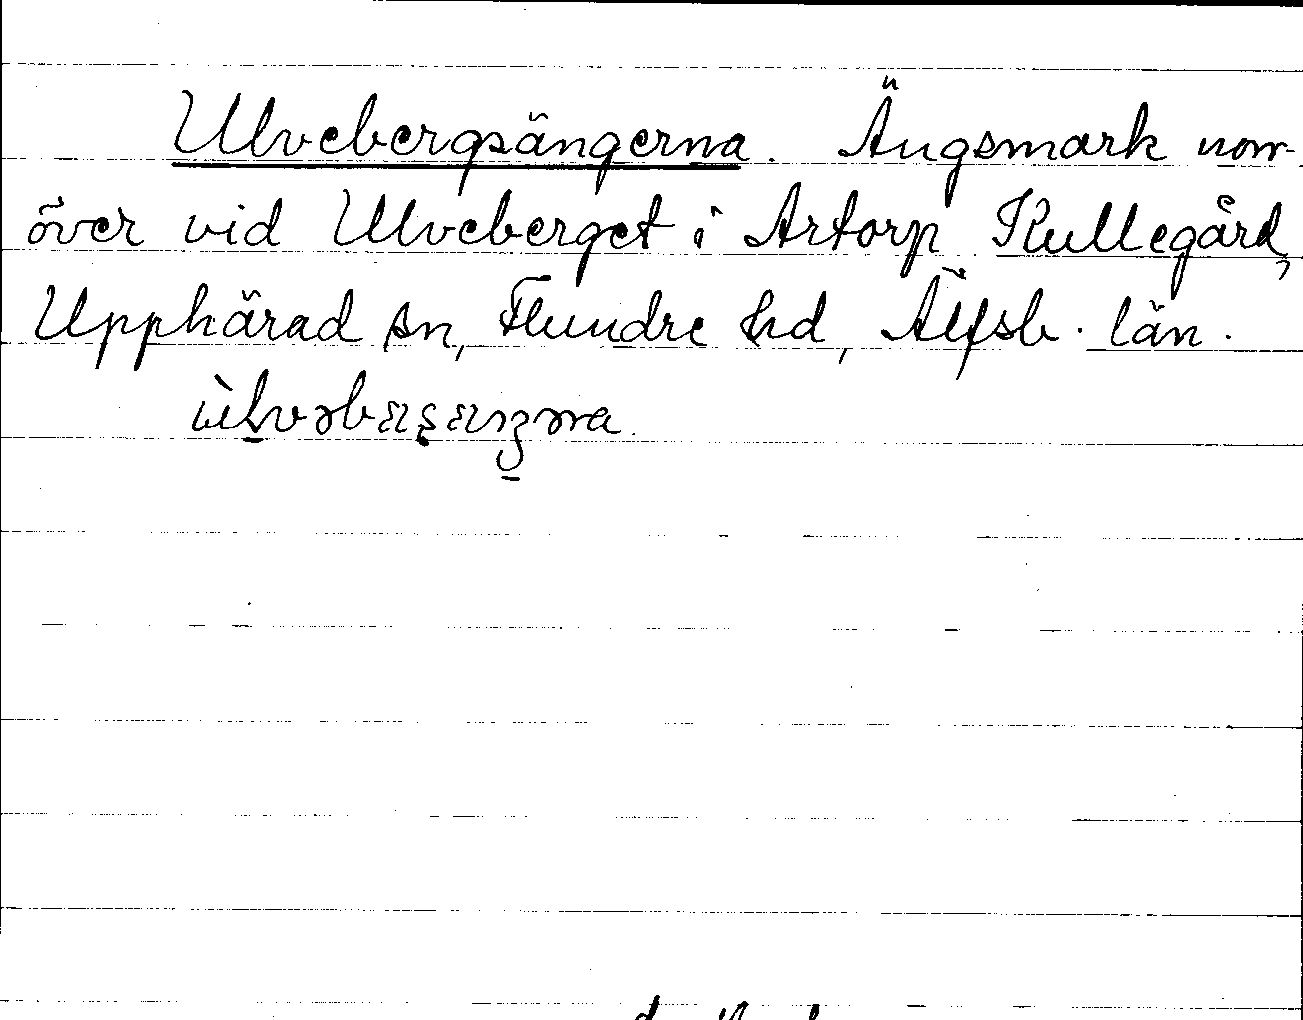 Ulvebergsängerna. Ängsmark norr-
över vid Ulveberget i Artorp Kullegård,
Upphärad sn, Flundre hd, Älfsb. län.